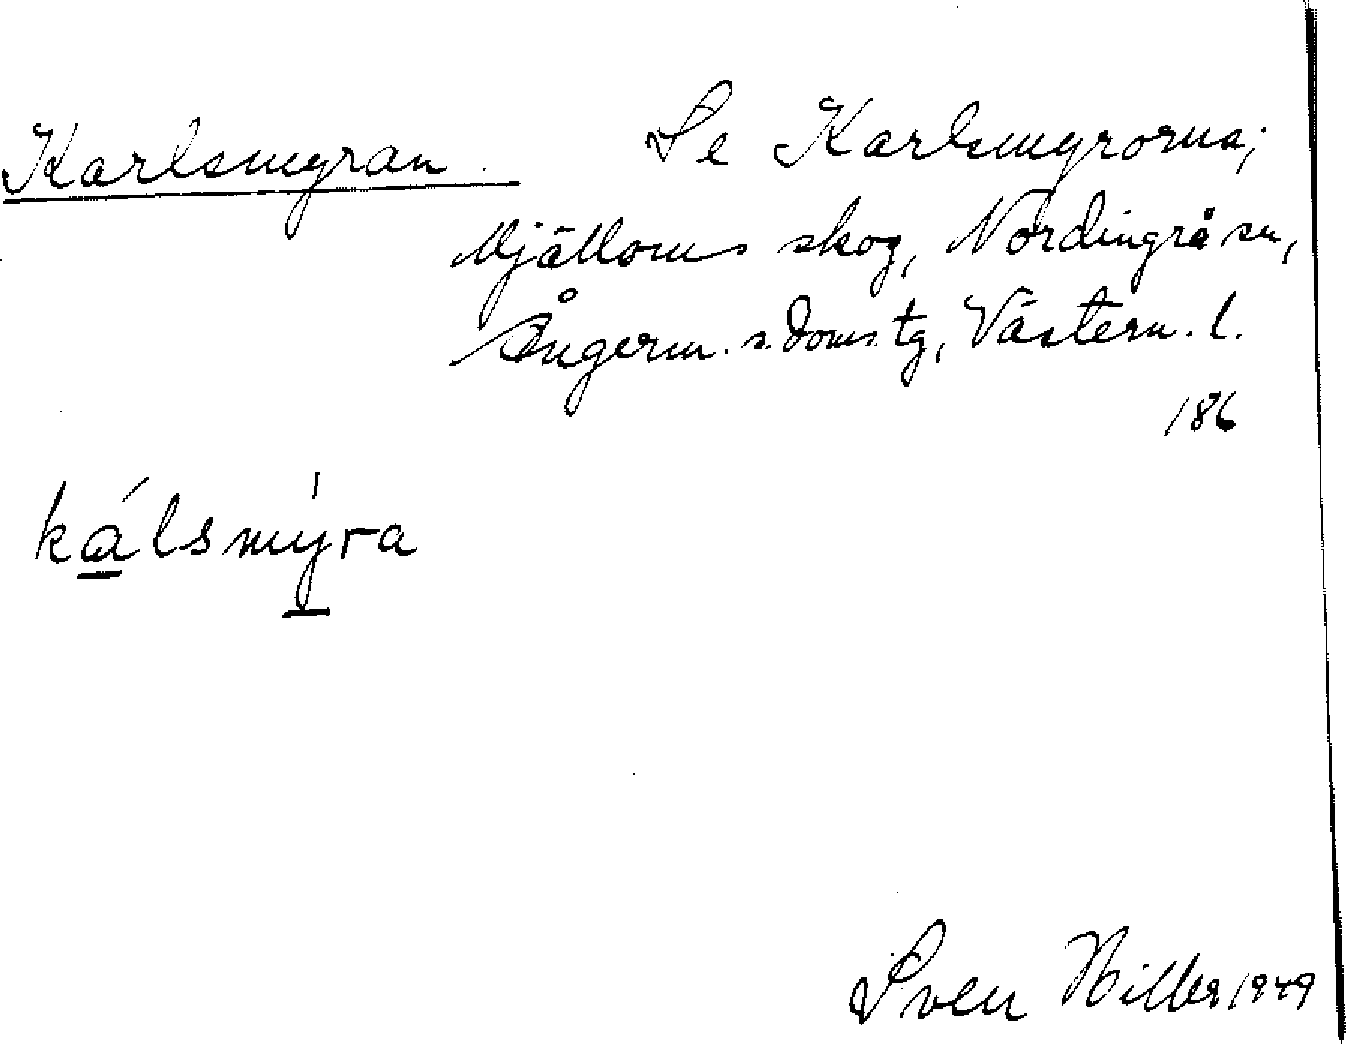 Karlsmyran. Se Karlsmyrorna;
Mjälloms skog, Nordingrå sn,
Ångerm. s. doms. tg, Västern. l.
186
kálsmýra
Sven Hiller 1949